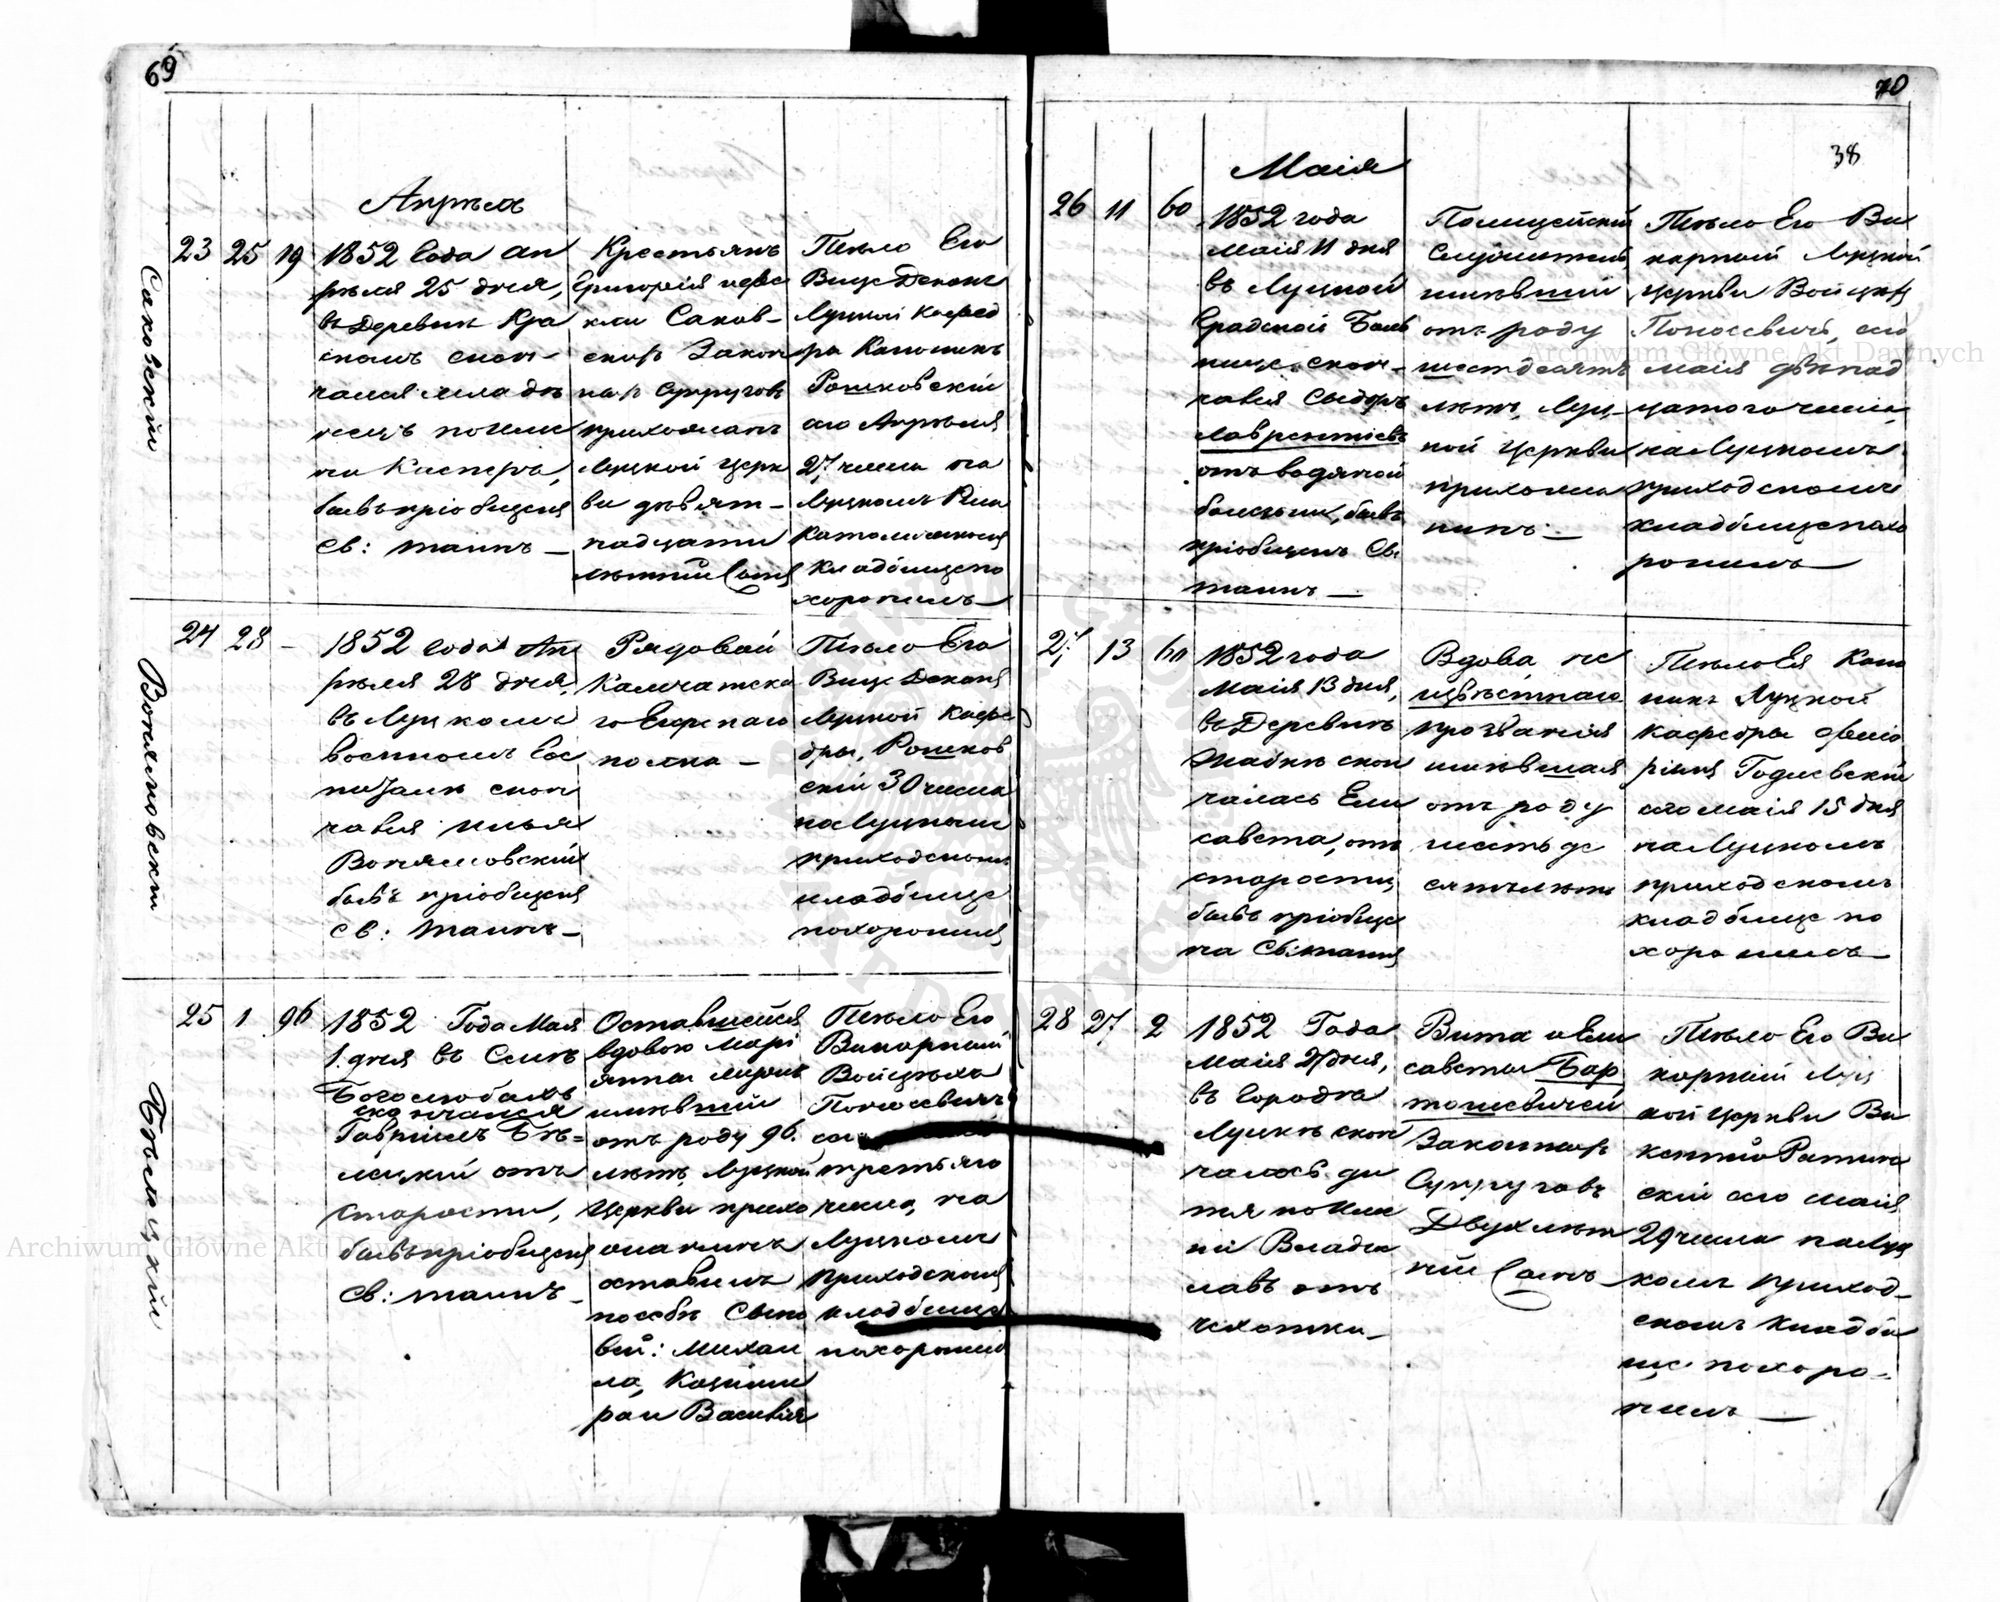 69
Апрѣль
23 25 19
Саковскiй
1852 Года Ап
рѣля 25 дня,
въ Деревнѣ Кра
сномъ скон-
чался младе
нецъ по име
ни Касперъ,
бывъ прiобщенъ
Св: таинъ —
Крестьянъ
Григорiя
Саков-
скихъ Закон
ныхъ Супруговъ
прихожанъ
Луцкой Церк
ви девят-
надцати
лѣтнiй Сынъ
Тѣло Его
Вице Деканъ
Луцкой Кафед
ры Каноникъ
Рошковскiй
сего Апрѣля
27 числа на
Луцкомъ Рим
Католическомъ
Кладбище по
хоронилъ
24 28 -
Вонялковскiй
1852 года Ап
рѣля 28 дня,
въ Луцкомъ
военномъ Гос
питалѣ скон
чался Илья
Вонялковскiй
бывъ прiобщенъ
Св: таинъ —
Рядовой
Камчатска
го Егерскаго
полка —
Тѣло Его
Вице Деканъ
Луцкой Кафе
дры, Рошков
скiй 30 числа
на Луцкомъ
приходскомъ
кладбище
похоронилъ
25 1 96
Бѣлецкiй
1852 Года Мая
1 дня въ Селѣ
Богослюбахъ
скончался
Гаврiилъ Бѣ=
лецкiй отъ
старости,
бывъ прiобщенъ
Св: таинъ —
Оставшейся
вдовою Марi
анны мужъ
имѣвшiй
отъ роду 96
лѣтъ, Луцкой
Церкви прихо
жанинъ
оставилъ
по себѣ Сыно
вей: Михаи
ла, Казими
ра и Василiя
Тѣло Его
Викарный
Войцѣхъ
Понсевичъ
третьяго
числа, на
Луцкомъ
приходскомъ
кладбище
похоронилъ
70
38
Маiя
26 11 60
1852 года
Маiя 11 дня
въ Луцкой
Градской Боль
нице скон-
чался Сидоръ
Лаврентiевъ
отъ водяной
болезни, бывъ
прiобщенъ Св:
таинъ —
Полицейскiй
Служитель,
имѣвшiй
отъ роду
шестдесятъ
лѣтъ, Луц-
кой Церкви
прихожа
нинъ —
Тѣло Его Ви
карный Луцкой
Церкви Войцѣхъ
Понсевичъ, сего
Маiя двѣнад
цатого числа,
на Луцкомъ
приходскомъ
кладбище похо
ронилъ —
27 13 60
1852 года
Маiя 13 дня,
въ Деревнѣ
Жабкѣ скон
чалась Ели
савета, отъ
старости,
бывъ прiобще
на Св: таинъ
Вдова, не
извѣстнаго
прозванiя
имѣвшая
отъ роду
шестьде
сятъ лѣтъ
Тѣло Ея Кано
никъ Луцкой
Кафедры Флiо
рiянъ Годлевскiй
сего Маiя 15 дня
на Луцкомъ
приходскомъ
кладбище по
хоронилъ —
28 27 2
1852 Года
Маiя 27 дня,
въ Городѣ
Луцкѣ скон
чалось ди
тя по име
ни Влади
славъ отъ
чахотки —
Вита и Ели
саветы Бар
тошевичей
Законныхъ
Супруговъ
Двухлѣт
нiй Сынъ
Тѣло Его Ви
карный Луц
кой Церкви Ви
кентiй
скiй сего Маiя
29 числа на Луц
комъ приход-
скомъ Кладби
ще похоро-
нилъ —
Archiwum Główne Akt Dawnych
Archiwum Główne Akt Dawnych